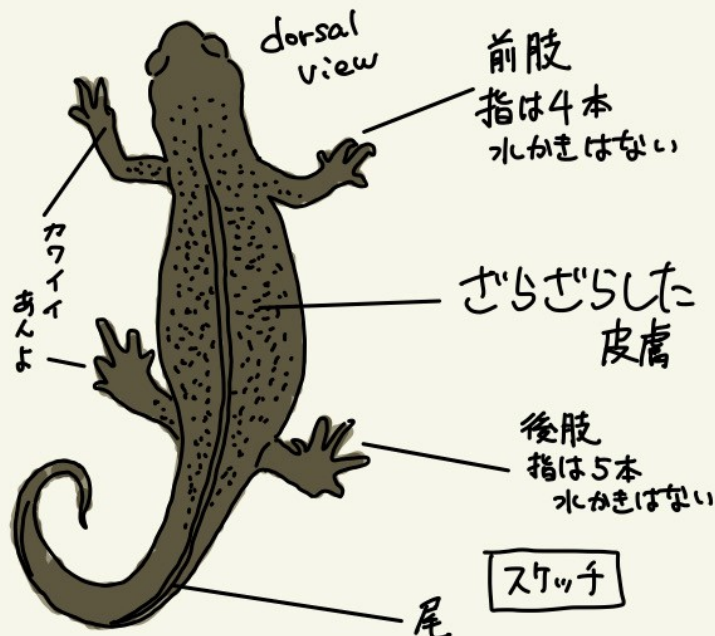 dorsal
view
前肢
指は4本
水かきはない
カワイイ
あんよ
ざらざらした
皮膚
後肢
指は5本
水かきはない
スケッチ
尾